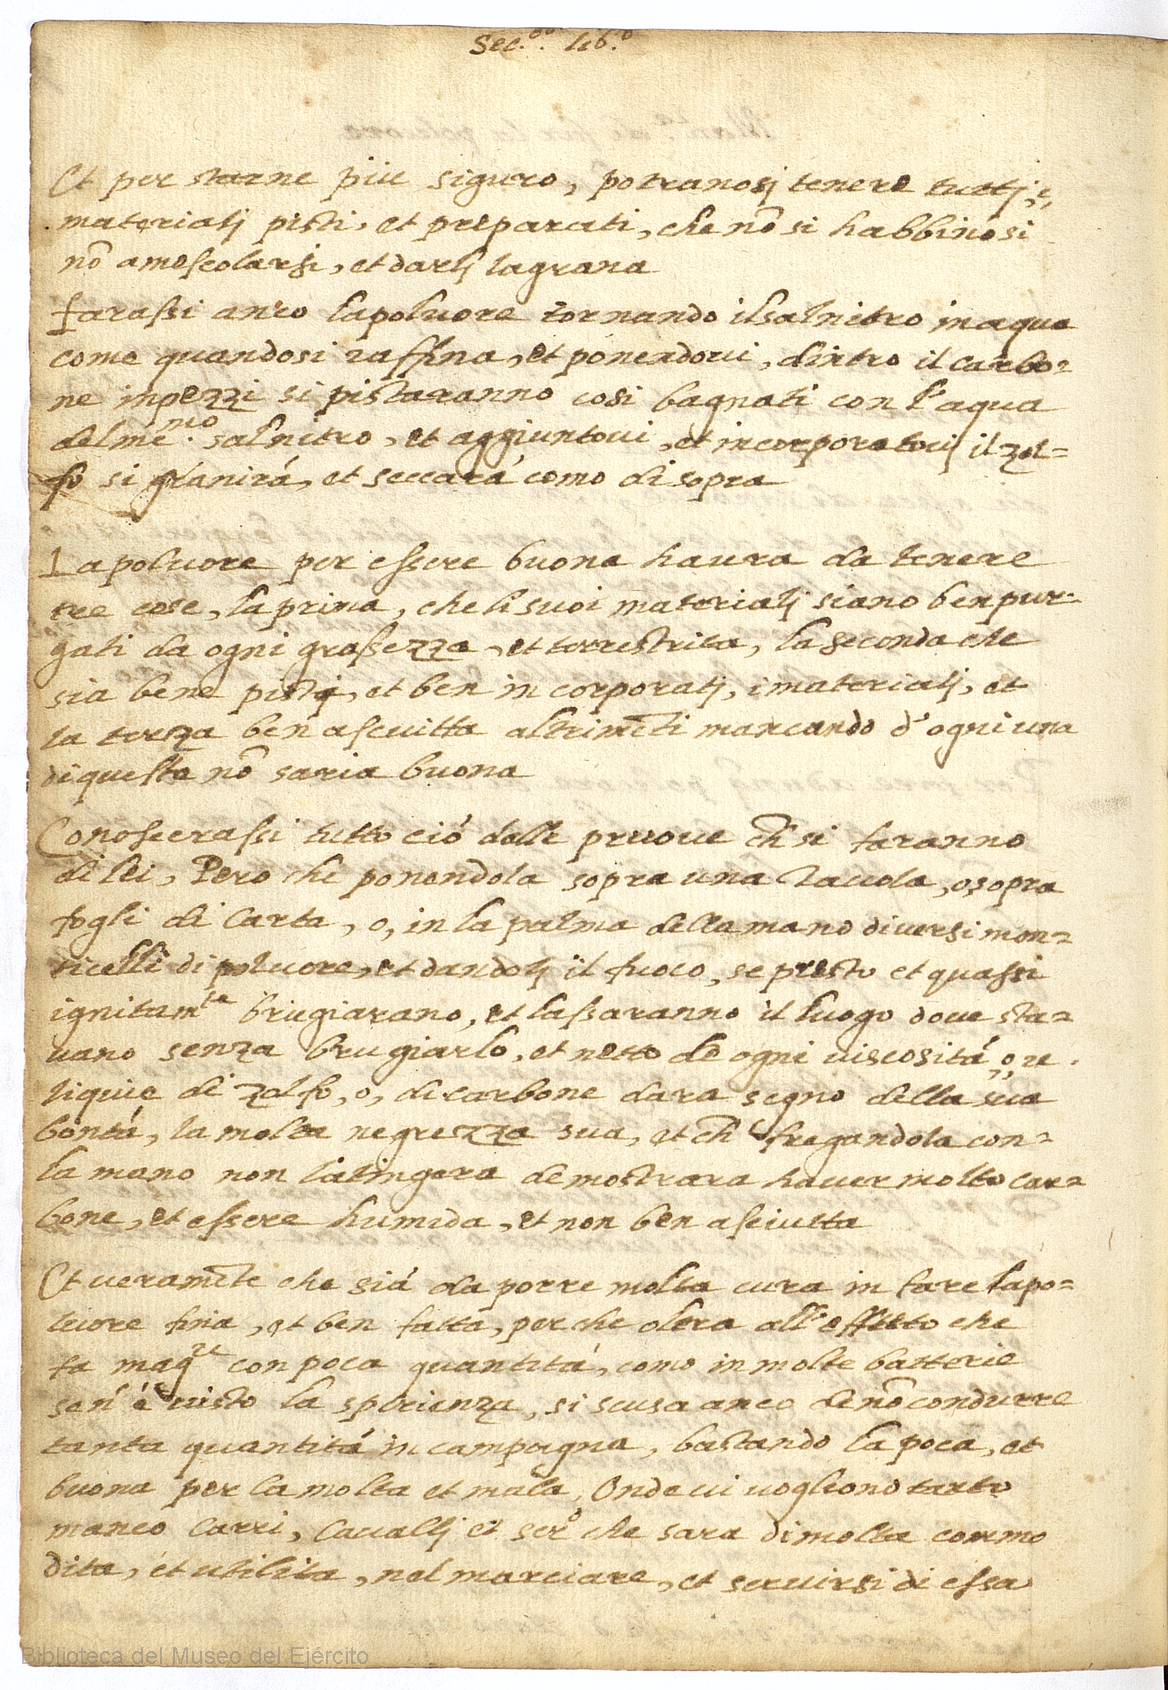 Sec.do lib.o
Et per starne piu siguro, potranosi tenere tuttj i,
materialj pisti, et preparati, che nõ si habbino si
nõ amoscolarsi, et darlj la grana
farassi anco la poluore tornando il salnitro in aqua
come quando si raffina, et ponendoui, dintro il carbo=
ne in pezzi si pistaranno cosi bagnati con l'aqua
del me.mo salnitro, et aggiuntoui, et incorporatouj il zol=
fo si granirá, et seccará como di sopra
La poluore per essere buona haura da tenere
tre cose, la prima, che li suoi materialj siano ben pur-
gati da ogni grassezza, et terrestrita, la seconda che
sia bene pistj, et ben in corporatj, i materialj, et
la terza ben asciutta altrimẽti mancando d'ogni una
di queste nõ saria buona
Conoscerassi tutto ció dalle pruoue ch̃ si faranno
di lei, Pero che ponendola sopra una Tauola, o sopra
fogli di Carta, o, in la palma della mano diuersi mon=
ticelli di poluore, et dandolj il fuoco, se presto et quassi
ignitam.te brugiarano, et lassaranno il luogo doue sta=
uano senza brugiarlo, et netto de ogni uiscositá, o, re
liquie di zolfo, o, di carbone dara segno della sua
bontá, la molta negrezza sua, et ch̃ fregandola con=
la mano non la tingera demostrara hauer molto car=
bone, et essere humida, et non ben asciutta
Et ueramẽte che siá da porre molta cura in fare la po=
luore fina, et ben fatta, perche oltra all'effetto che
fa magre con poca quantitá, como in molte batterie
sen'é uisto la sperienza, si scusa anco de nõ condurre
tanta quantitá in campagna, bastando la poca, et
buona per la molta et mala, Onde ui uogliono tanto
manco Carri, Cauallj et ser.o che sara di molta commo
dita, et utilita, nel marciare, et seruirsi di essa
Biblioteca del Museo del Ejército